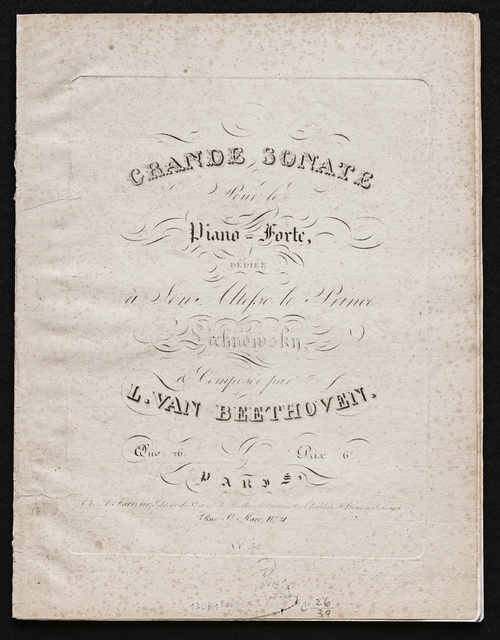 GRANDE SONATE
Pour le
Piano = Forte,
DÉDIÉE
à Son Altesse le Prince
Lechnowsky,
& Composée par
L. VAN BEETHOVEN.
Œuv. 26. Prix 6
PARIS,
Chez A. Farrenc, Editeur
Rue St. Marc, No. 21
13081
26
39